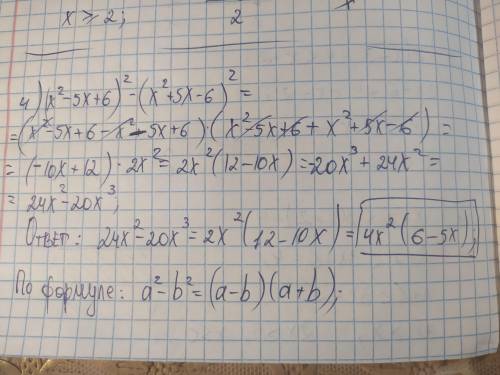 x ≥ 2; 2 x
4) (x²-5x+6)² - (x²+5x-6)² =
= (x²-5x+6-x²-5x+6) · (x²-5x+6+x²+5x-6) =
= (-10x+12) · 2x² = 2x²(12-10x) = -20x³ + 24x² =
= 24x²-20x³;
Ответ: 24x²-20x³ = 2x²(12-10x) = 4x²(6-5x);
По формуле: a²-b² = (a-b)(a+b);